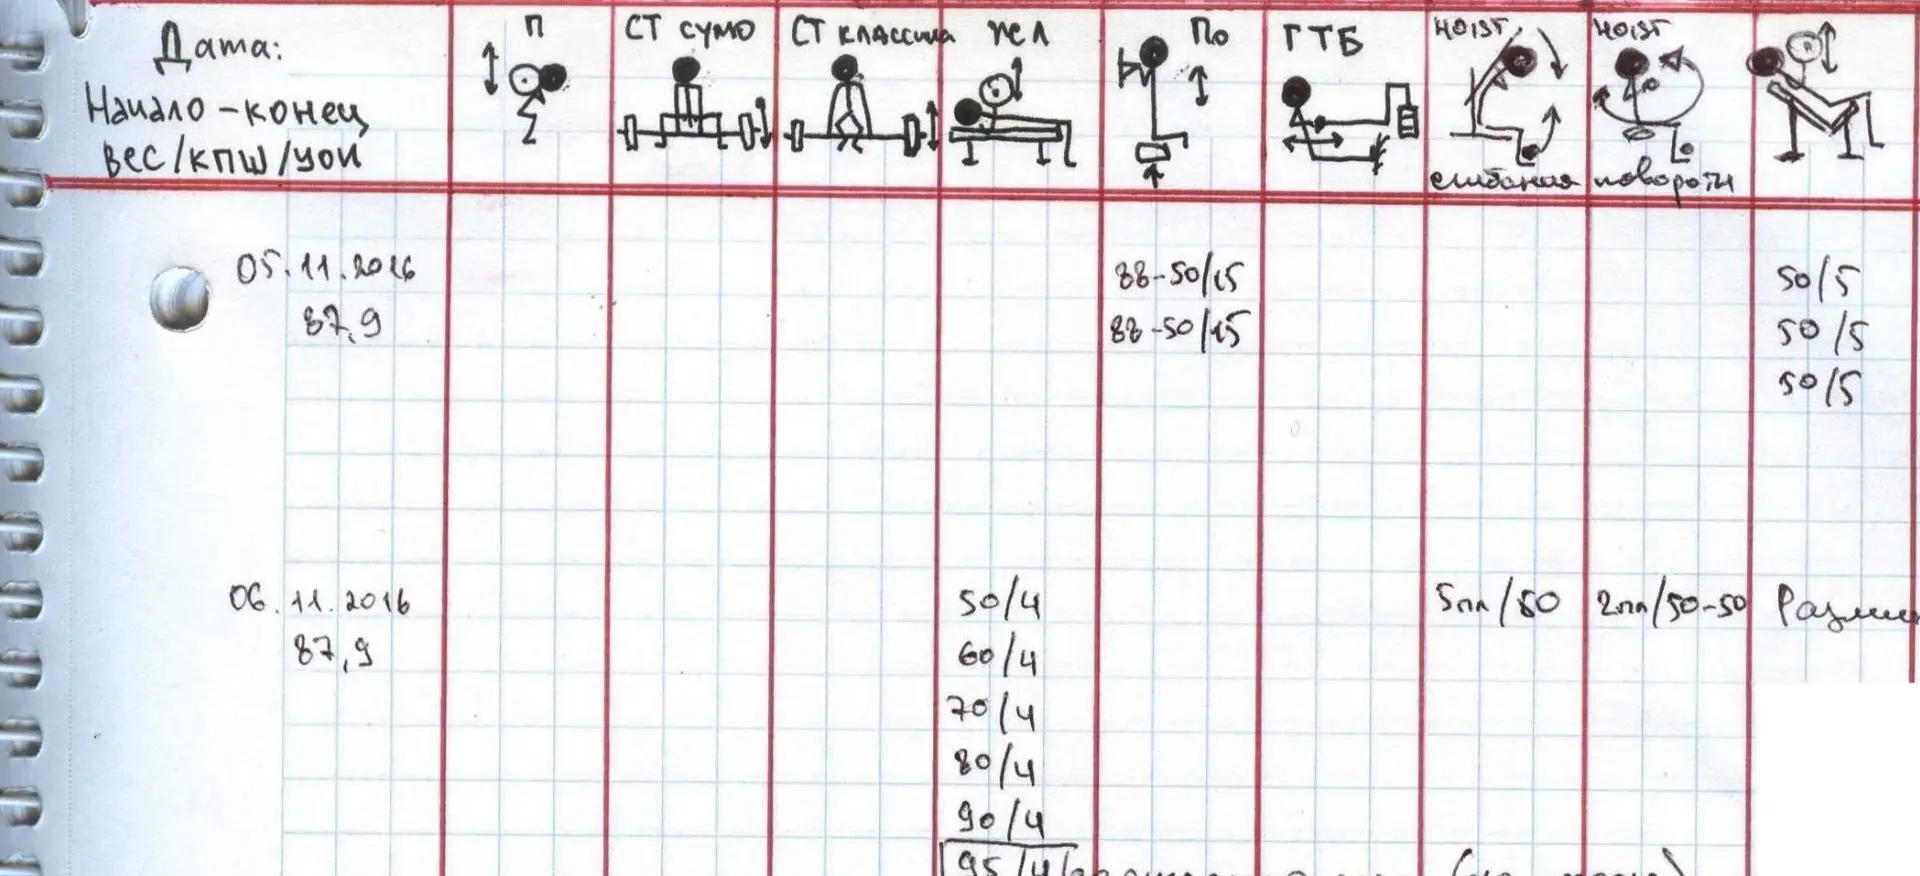 Дата:
Начало - конец
вес/кпш/уои
П
СТ сумо
СТ классика
жл
По
ГТБ
HOIST
сгибания
HOIST
повороты
05.11.2016
87,9
88-50/15
88-50/15
50/5
50/5
50/5
06.11.2016
87,9
50/4
60/4
70/4
80/4
90/4
95/4
5пл/50
2пл/50-50